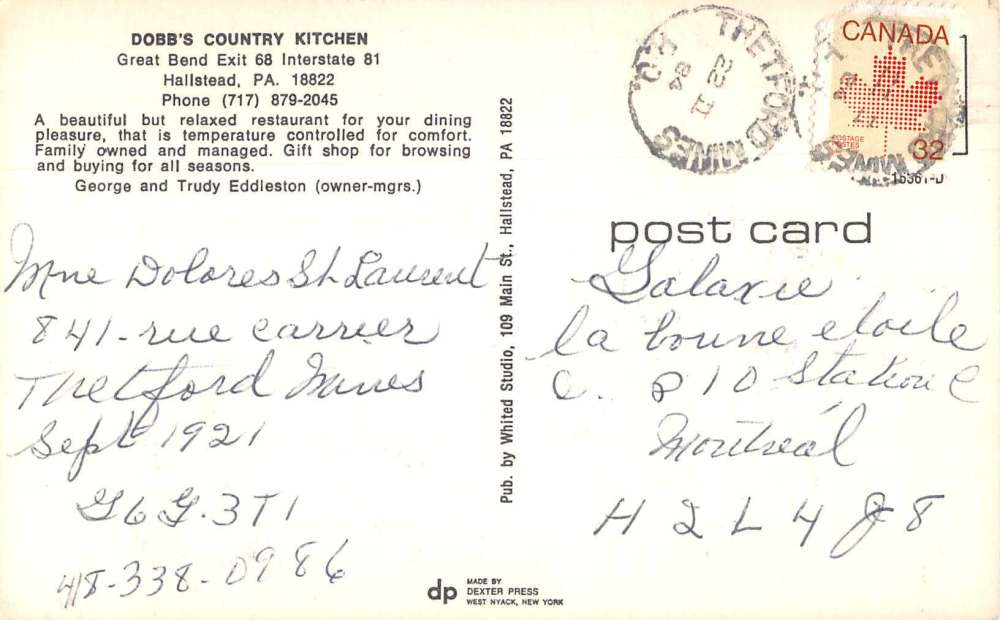 DOBB'S COUNTRY KITCHEN
Great Bend Exit 68 Interstate 81
Hallstead, PA. 18822
Phone (717) 879-2045
A beautiful but relaxed restaurant for your dining
pleasure, that is temperature controlled for comfort.
Family owned and managed. Gift shop for browsing
and buying for all seasons.
George and Trudy Eddleston (owner-mgrs.)
Mme Dolores St Laurent
841-rue Carrier
Thetford Mines
Sept 1921
G6G.3T1
418-338-0986
Pub. by Whited Studio, 109 Main St., Hallstead, PA 18822
dp
MADE BY
DEXTER PRESS
WEST NYACK, NEW YORK
THETFORD MINES
22 II
84
CANADA
POSTAGE
POSTES
32
16361-D
post card
Galaxie
la bonne etoile
C. 810 Station C
Montréal
H2L4J8